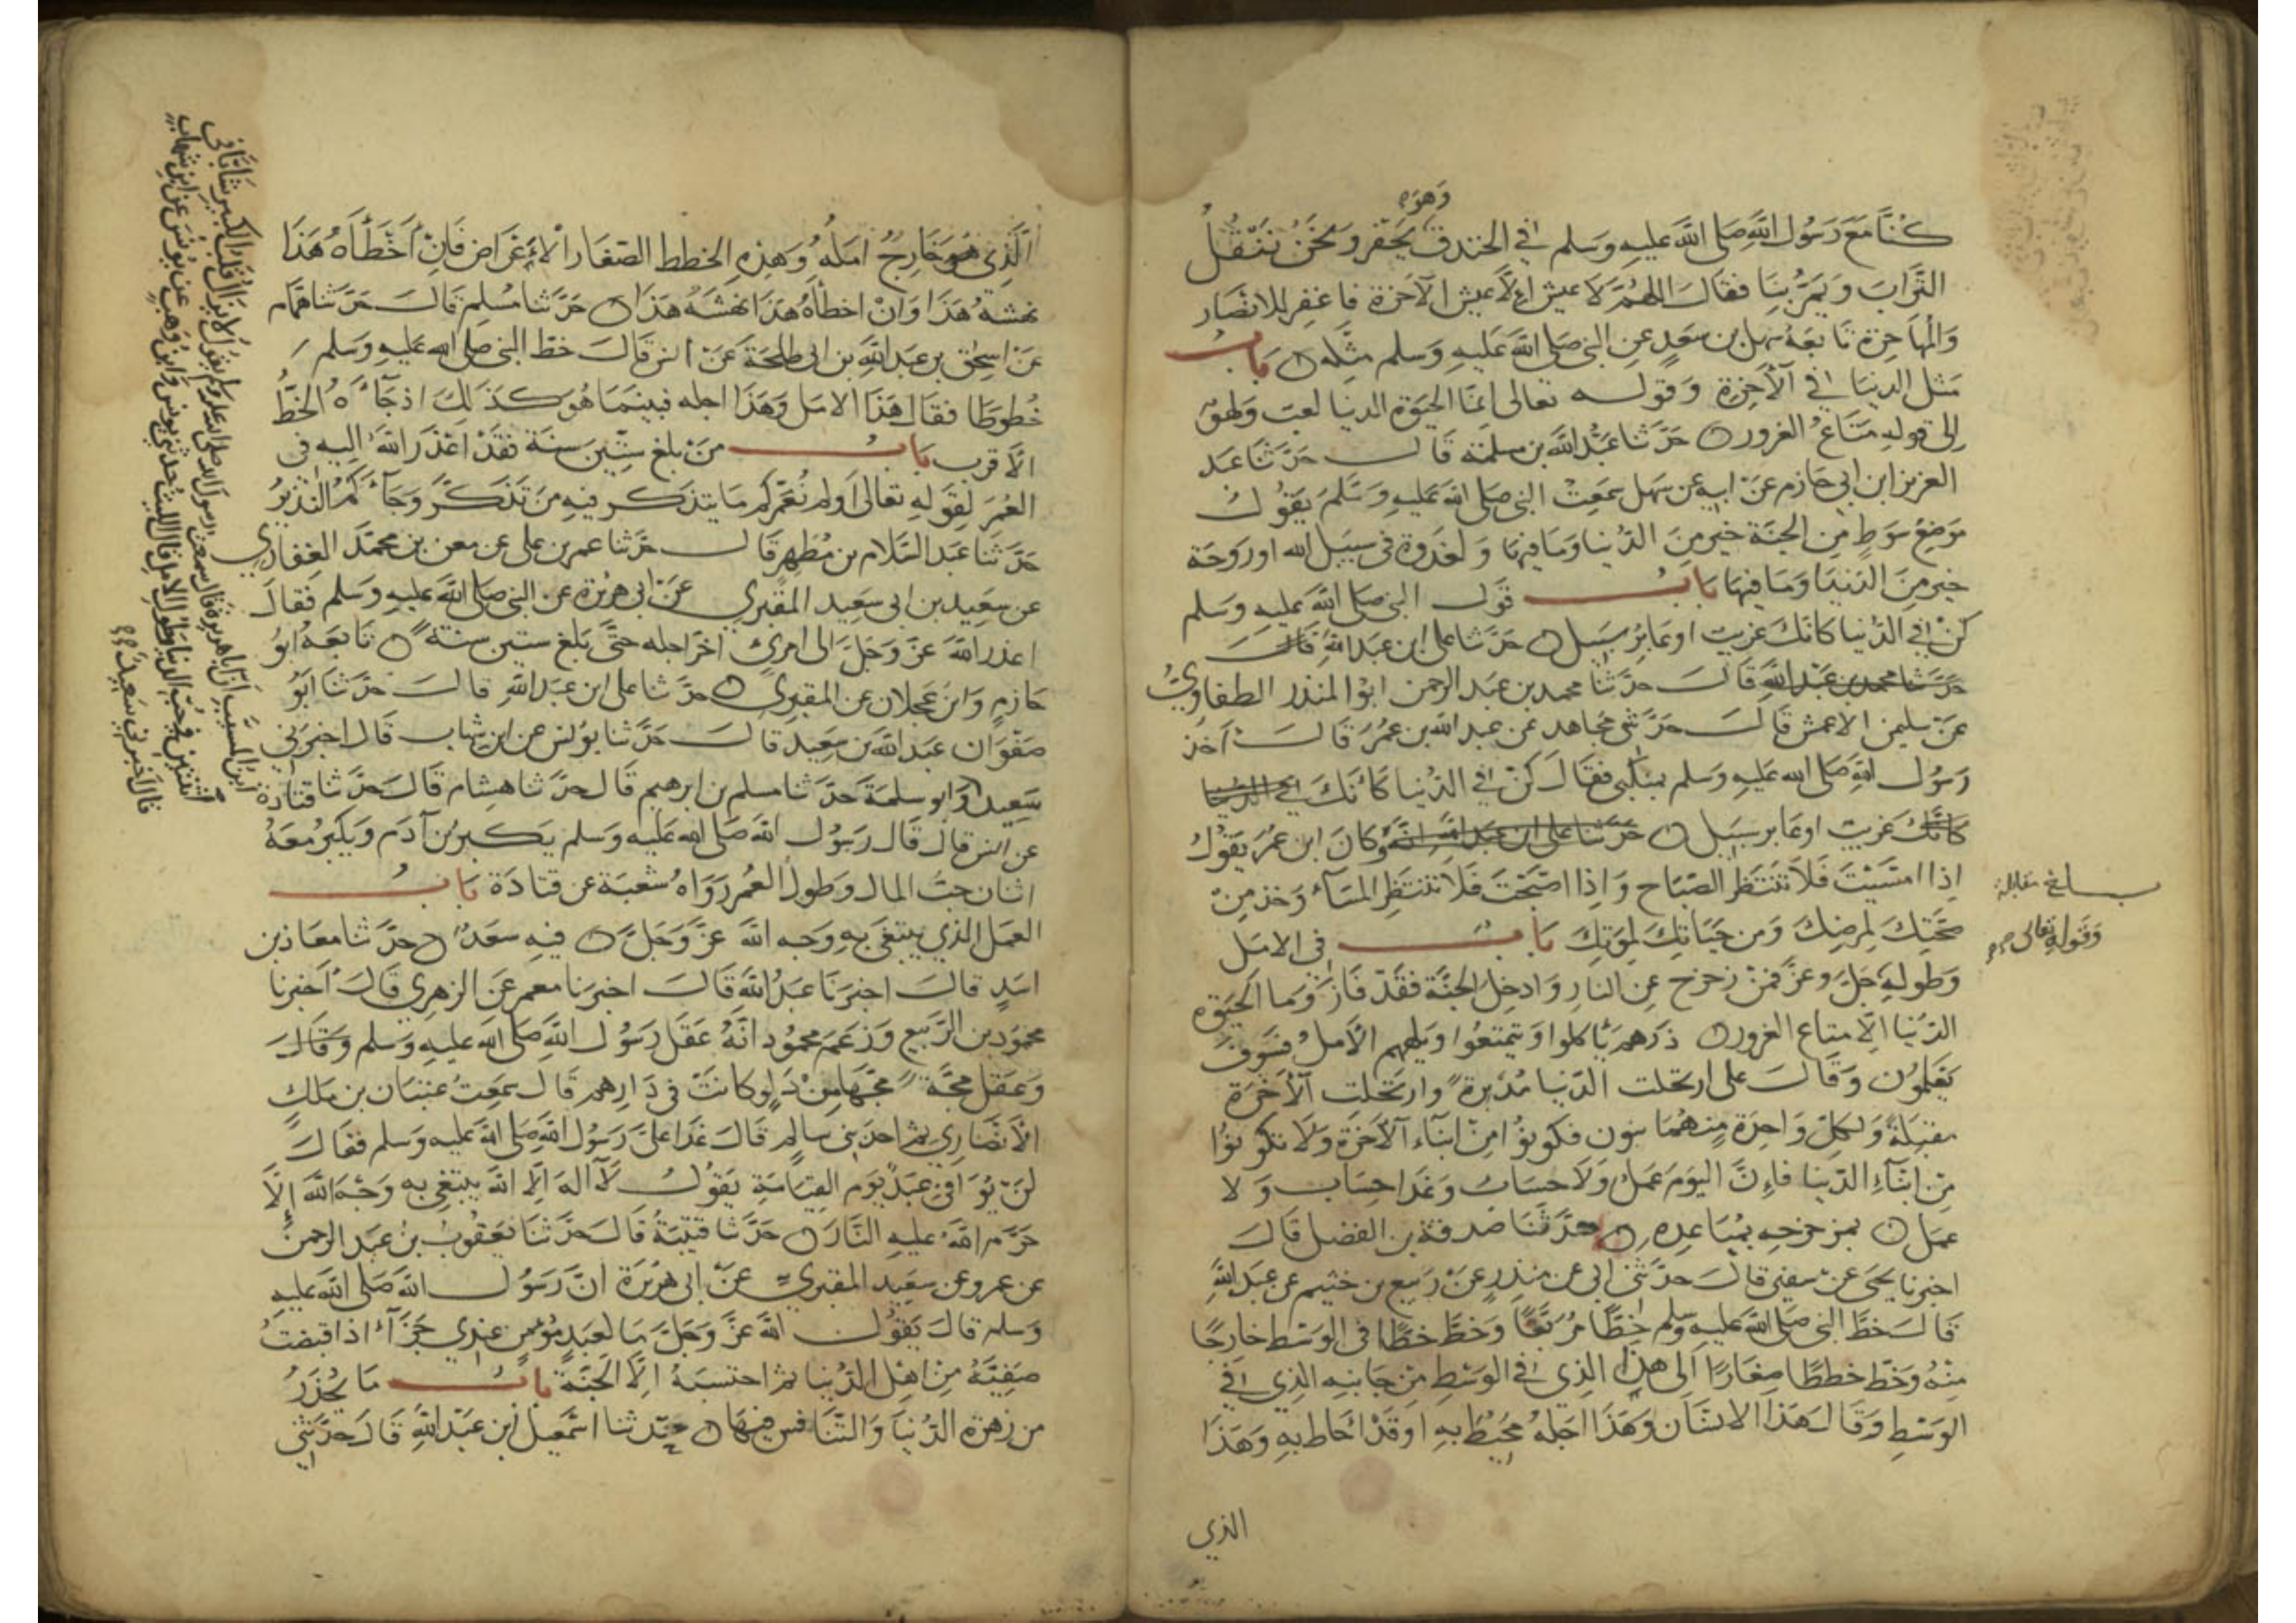 وهو
كنا مع رسول الله صلى الله عليه وسلم في الخندق يحفر ونحن ننقل
التراب ويمر بنا فقال اللهم لا عيش إلا عيش الآخرة فاغفر للانصار
والمهاجرة تابعه سهل بن سعد عن النبي صلى الله عليه وسلم مثله باب
مثل الدنيا في الآخرة وقوله تعالى انما الحيوة الدنيا لعب ولهو
إلى قوله متاع الغرور حدثنا عبد الله بن سلمة قال حدثنا عبد
العزيز ابن ابي حازم عن ابيه عن سهل سمعت النبي صلى الله عليه وسلم يقول
موضع سوط من الجنة خير من الدنيا وما فيها ولغدوة في سبيل الله او روحة
خير من الدنيا وما فيها باب قول النبي صلى الله عليه وسلم
كن في الدنيا كانك غريب او عابر سبيل حدثنا علي ابن عبد الله قال
حدثنا محمد بن عبد الله قال حدثنا محمد بن عبد الرحمن ابو المنذر الطفاوي
عن سليمن الاعمش قال حدثني مجاهد عن عبد الله بن عمر قال اخذ
رسول الله صلى الله عليه وسلم بمنكبي فقال كن في الدنيا كانك في الدنيا
كانك غريب او عابر سبيل حدثنا علي ابن عبد الله انه وكان ابن عمر يقول
اذا امسيت فلا تنتظر الصباح واذا اصبحت فلا تنتظر المساء وخذ من
صحتك لمرضك ومن حياتك لموتك باب في الامل
وطوله جل وعز فمن زحزح عن النار وادخل الجنة فقد فاز وما الحيوة
الدنيا الا متاع الغرور ذرهم يأكلوا ويتمتعوا ويلههم الأمل فسوف
يعلمون وقال علي ارتحلت الدنيا مدبرة وارتحلت الآخرة
مقبلة ولكل واحدة منهما بنون فكونوا من ابناء الآخرة ولا تكونوا
من ابناء الدنيا فإن اليوم عمل ولا حساب وغدا حساب ولا
عمل بمزحزحه بمباعده حدثنا صدقة بن الفضل قال
اخبرنا يحيى عن سفين قال حدثني ابي عن منذر عن ربيع بن خثيم عن عبد الله
قال خط النبي صلى الله عليه وسلم خطا مربعا وخط خطا في الوسط خارجا
منه وخط خططا صغارا الى هذا الذي في الوسط من جانبه الذي في
الوسط وقال هذا الانسان وهذا اجله محيط به او قد احاط به وهذا
الذي
بلغ مقابلة
وقوله تعالى
الذي هو خارج امله وهذه الخطط الصغار الاعراض فان اخطأه هذا
نهشه هذا وان اخطأه هذا نهشه هذا حدثنا مسلم قال حدثنا همام
عن اسحق بن عبد الله بن ابي طلحة عن انس قال خط النبي صلى الله عليه وسلم
خطوطا فقال هذا الامل وهذا اجله فبينما هو كذلك اذ جاءه الخط
الاقرب باب من بلغ ستين سنة فقد اعذر الله اليه في
العمر لقوله تعالى اولم نعمركم ما يتذكر فيه من تذكر وجاءكم النذير
حدثنا عبد السلام بن مطهر قال حدثنا عمر بن علي عن معن بن محمد الغفاري
عن سعيد بن ابي سعيد المقبري عن ابي هريرة عن النبي صلى الله عليه وسلم فقال
اعذر الله عز وجل الى امرئ اخر اجله حتى بلغ ستين سنة تابعه ابو
حازم وابن عجلان عن المقبري حدثنا علي ابن عبد الله قال حدثنا ابو
صفوان عبد الله بن سعيد قال حدثنا يونس عن ابن شهاب قال اخبرني
سعيد وابو سلمة حدثنا مسلم بن ابرهيم قال حدثنا هشام قال حدثنا قتادة
عن انس قال قال رسول الله صلى الله عليه وسلم يكبر بن آدم ويكبر معه
اثنان حب المال وطول العمر رواه شعبة عن قتادة باب
العمل الذي يبتغى به وجه الله عز وجل فيه سعد حدثنا معاذ بن
اسد قال اخبرنا عبد الله قال اخبرنا معمر عن الزهري قال اخبرنا
محمود بن الربيع وزعم محمود انه عقل رسول الله صلى الله عليه وسلم وقال
وعقل مجة مجها من دلو كانت في دارهم قال سمعت عتبان بن ملك
الأنصاري ثم احد بني سالم قال غدا علي رسول الله صلى الله عليه وسلم فقال
لن يوافي عبد يوم القيامة يقول لا اله الا الله يبتغي به وجه الله إلا
حرم الله عليه النار حدثنا قتيبة قال حدثنا يعقوب بن عبد الرحمن
عن عمرو عن سعيد المقبري عن ابي هريرة ان رسول الله صلى الله عليه
وسلم قال يقول الله عز وجل ما لعبد مؤمن عندي جزاء اذا قبضت
صفيه من اهل الدنيا ثم احتسبه الا الجنة باب ما يحذر
من زهرة الدنيا والتنافس فيها حدثنا اسمعيل ابن عبد الله قال حدثني
ابن المسيب ان ابا هريرة قال سمعت رسول الله صلى الله عليه وسلم يقول لا يزال قلب الكبير شابا في
اثنتين في حب الدنيا وطول الامل قال الليث حدثني يونس وابن وهب عن يونس عن ابن شهاب
قال اخبرني سعيد